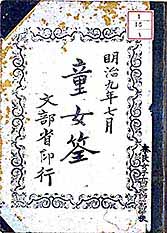 明治九年七月
童女筌
文部省印行